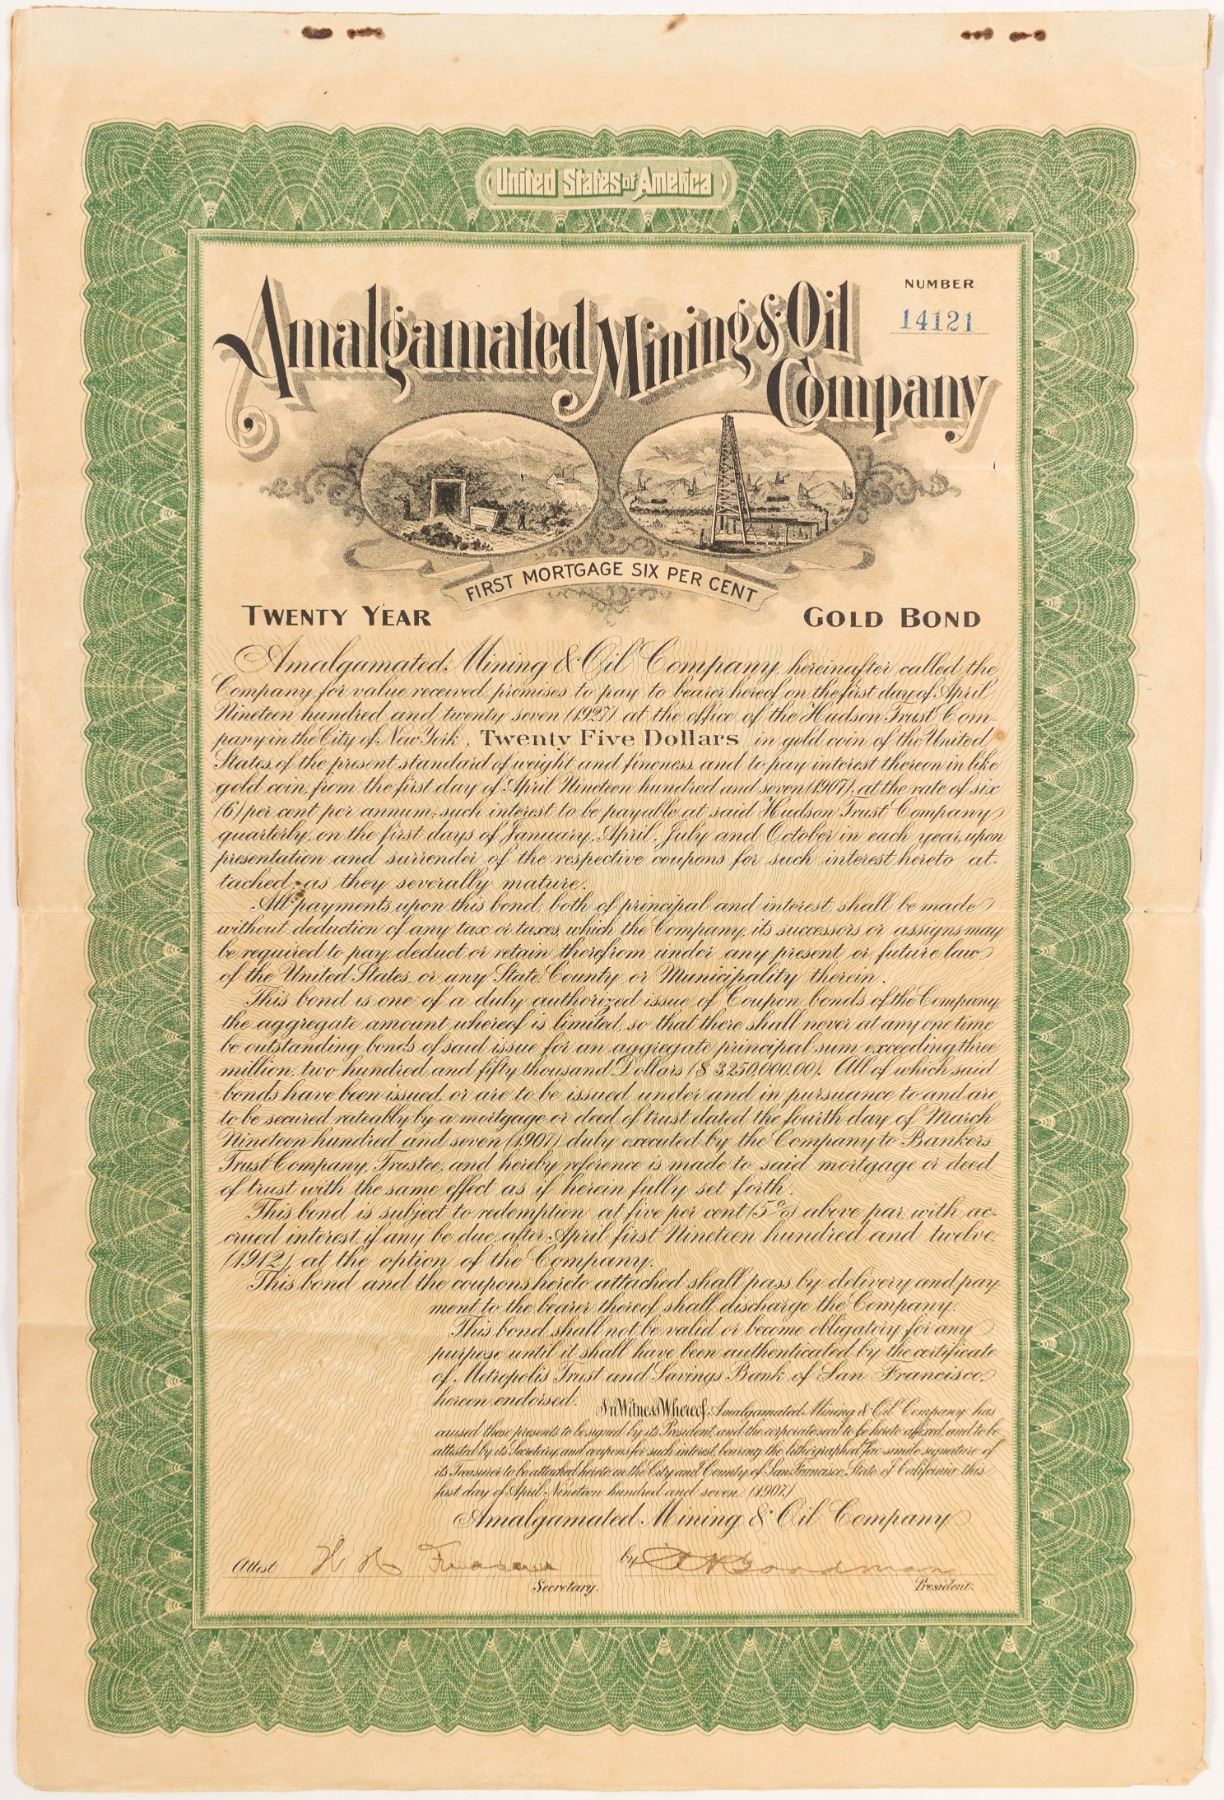 United States of America
NUMBER
14121
Amalgamated Mining & Oil
Company
FIRST MORTGAGE SIX PER CENT
TWENTY YEAR GOLD BOND
Amalgamated Mining & Oil Company, hereinafter called the
Company, for value received, promises to pay to bearer hereof on the first day of April
Nineteen hundred and twenty seven (1927) at the office of the Hudson Trust Com-
pany in the City of New York, Twenty Five Dollars in gold coin of the United
States, of the present standard of weight and fineness, and to pay interest thereon in like
gold coin from the first day of April Nineteen hundred and seven (1907), at the rate of six
(6) per cent per annum, such interest to be payable at said Hudson Trust Company
quarterly, on the first days of January, April, July and October in each year, upon
presentation and surrender of the respective coupons for such interest hereto at-
tached, as they severally mature.
All payments upon this bond, both of principal and interest, shall be made
without deduction of any tax or taxes, which the Company, its successors or assigns may
be required to pay, deduct or retain therefrom under any present or future law
of the United States, or any State, County or Municipality therein.
This bond is one of a duly authorized issue of Coupon bonds of the Company
the aggregate amount whereof is limited, so that there shall never at any one time
be outstanding bonds of said issue for an aggregate principal sum exceeding three
million, two hundred and fifty thousand Dollars ($3,250,000.00). All of which said
bonds have been issued, or are to be issued under and in pursuance to and are
to be secured rateably by a mortgage or deed of trust dated the fourth day of March
Nineteen hundred and seven (1907) duly executed by the Company to Bankers
Trust Company, Trustee, and hereby reference is made to said mortgage or deed
of trust with the same effect as if herein fully set forth.
This bond is subject to redemption at five per cent (5%) above par, with ac-
crued interest, if any be due, after April first Nineteen hundred and twelve
(1912), at the option of the Company.
This bond and the coupons hereto attached shall pass by delivery and pay
ment to the bearer thereof shall discharge the Company.
This bond shall not be valid or become obligatory for any
purpose until it shall have been authenticated by the certificate
of Metropolis Trust and Savings Bank of San Francisco,
hereon endorsed.
In Witness Whereof, Amalgamated Mining & Oil Company has
caused these presents to be signed by its President, and the corporate seal to be hereto affixed, and to be
attested by its Secretary, and coupons for such interest, bearing the lithographed fac-simile signature of
its Treasurer to be attached hereto in the City and County of San Francisco, State of California this
first day of April, Nineteen hundred and seven (1907)
Amalgamated Mining & Oil Company
Attest by A H Goodman
Secretary. President.